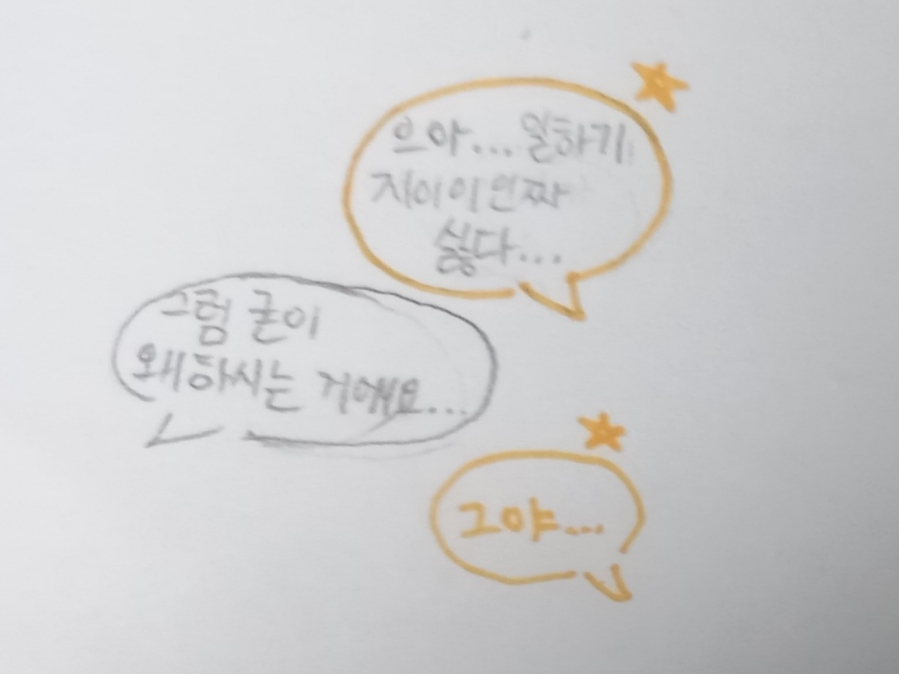 으아... 일하기
지이이인짜
싫다...
그럼 굳이
왜 하시는 거예요...
그야...